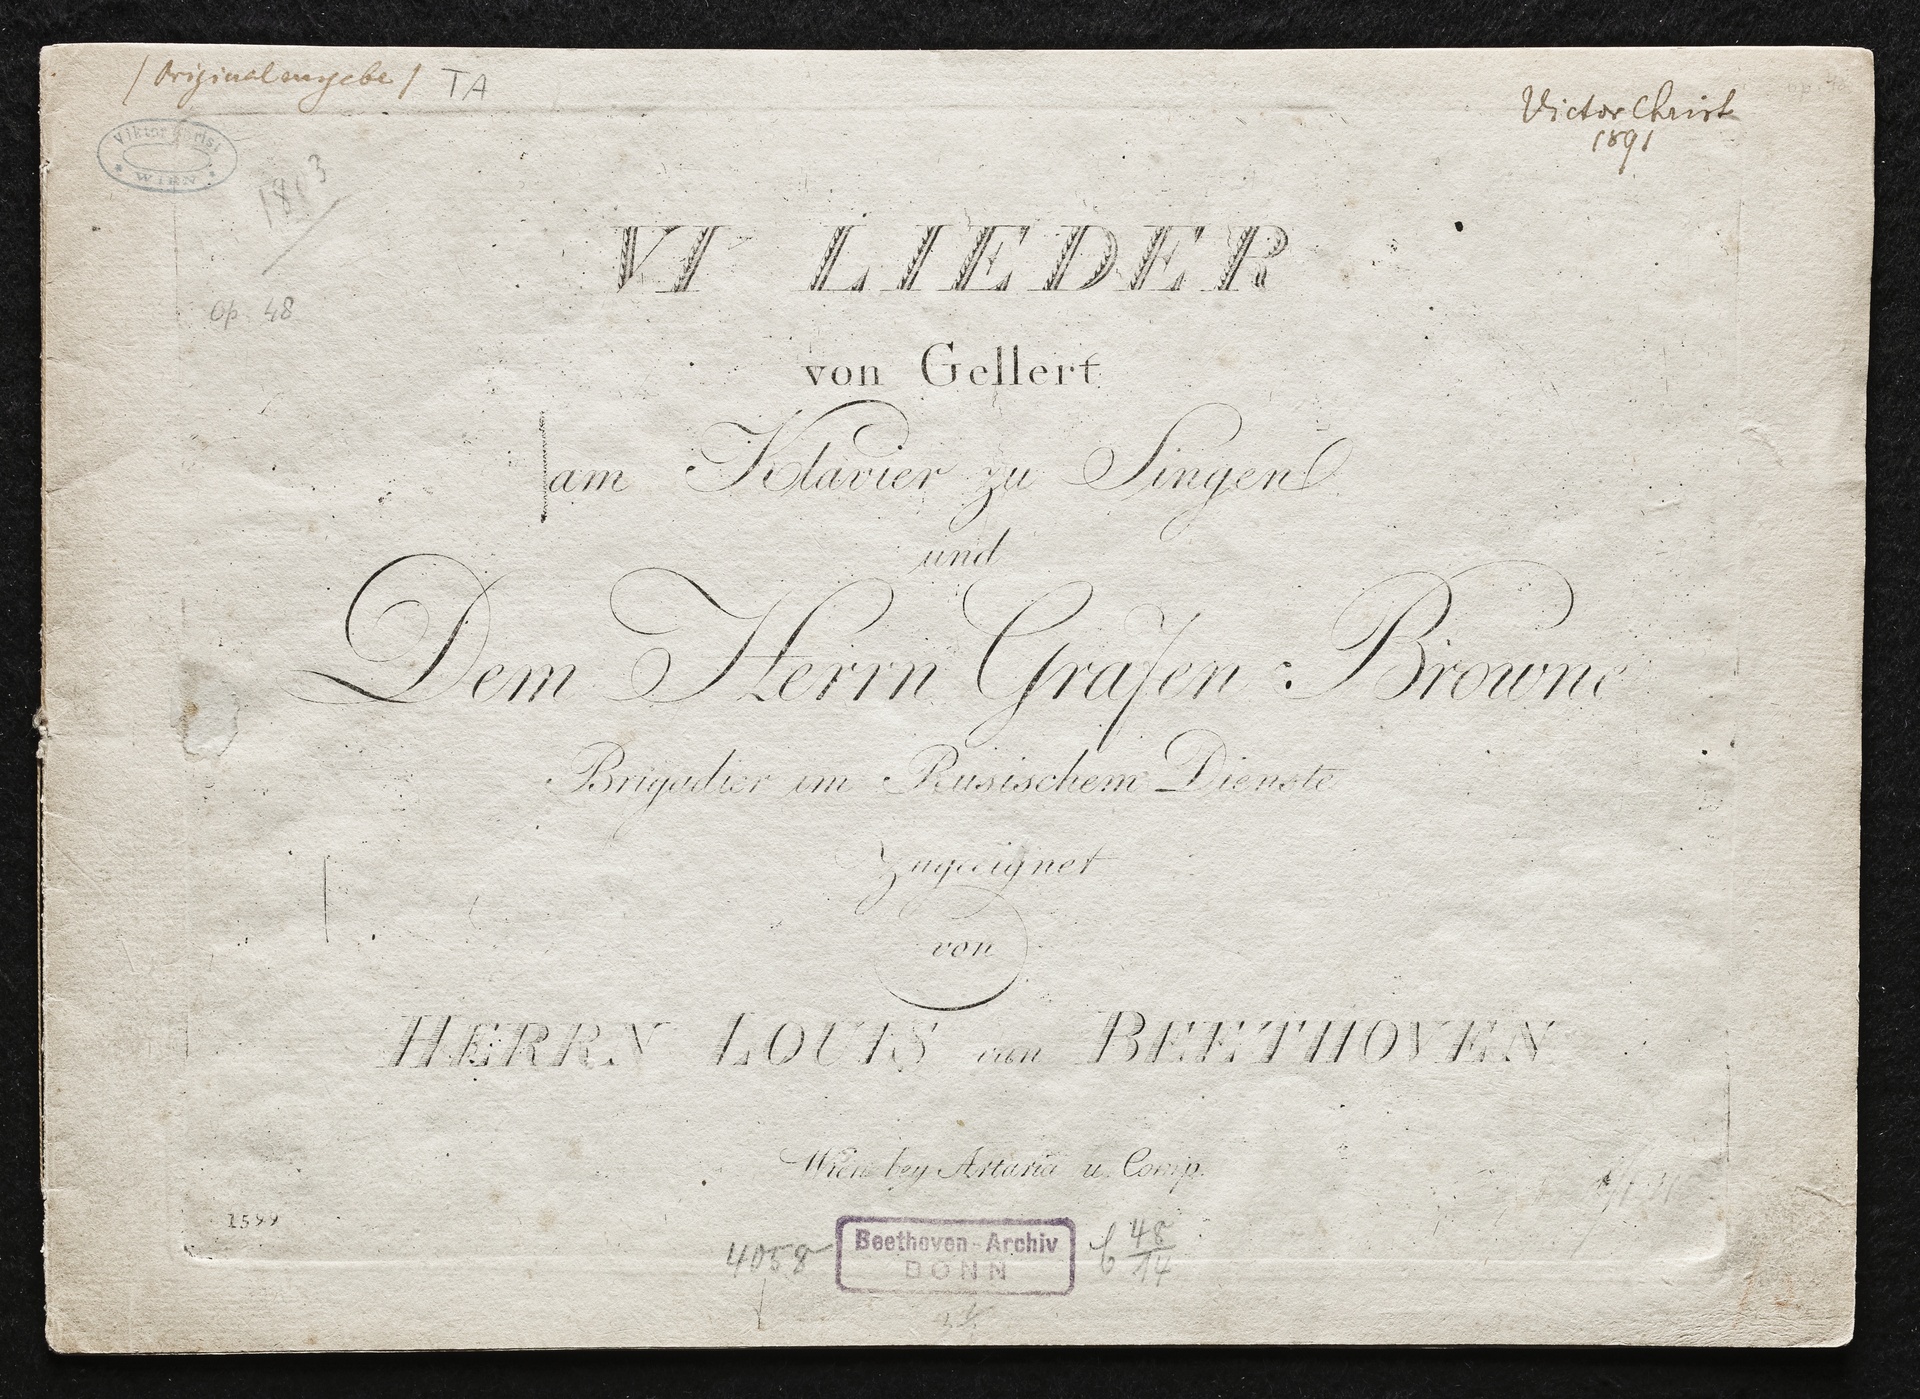 / Originalausgabe / TA
Victor Christ
1891
Viktor Christ
WIEN
1803
Op. 48
VI LIEDER
von Gellert
am Klavier zu Singen
und
Dem Herrn Grafen : Browne
Brigadier im Rusischem Dienste
Zugeeignet
von
HERRN LOUIS van BEETHOVEN
Wien bey Artaria u. Comp.
1599
4058
Beethoven-Archiv
BONN
C 48/14